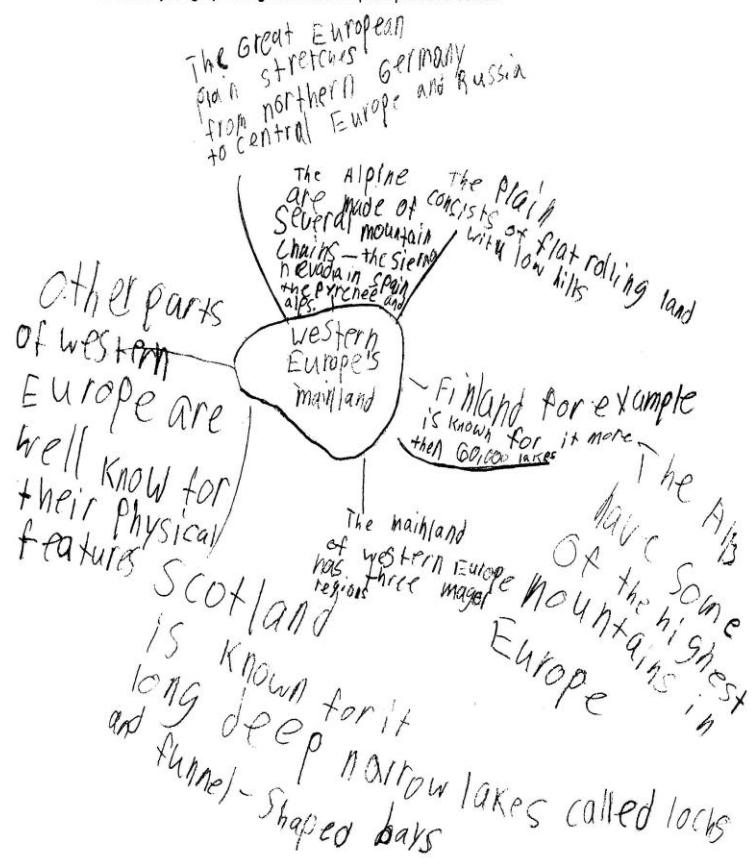 The Great European
plain stretches
from northern Germany
to central Europe and Russia
The Alpine
are made of
several mountain
chains – the sierra
nevada in spain
the pyrenee and
alps.
The plain
consists of flat rolling land
with low hills
western
Europe's
mainland
Other parts
of western
Europe are
well know for
their physical
features
Finland for example
is known for it more
then 60,000 lakes
The Alps
have some
of the highest
mountains in
Europe
The mainland
of western Europe
has three mager
regions
Scotland
is known for it
long deep narrow lakes called lochs
and funnel-shaped bays